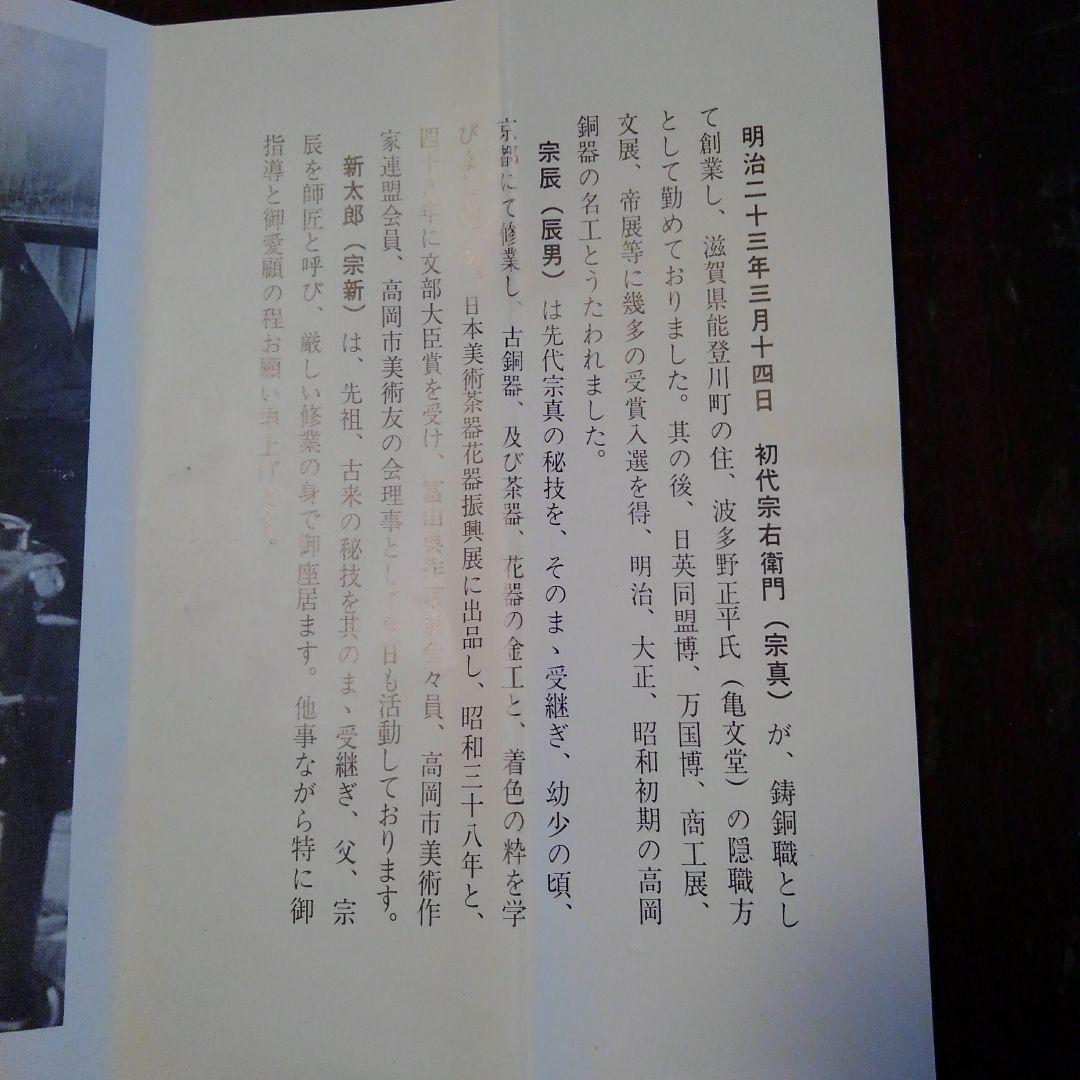 明治二十三年三月十四日　初代宗右衛門（宗真）が、鋳銅職とし
て創業し、滋賀県能登川町の住、波多野正平氏（亀文堂）の隠職方
として勤めておりました。其の後、日英同盟博、万国博、商工展、
文展、帝展等に幾多の受賞入選を得、明治、大正、昭和初期の高岡
銅器の名工とうたわれました。
宗辰（辰男）は先代宗真の秘技を、そのまゝ受継ぎ、幼少の頃、
京都にて修業し、古銅器、及び茶器、花器の金工と、着色の粋を学
び 日本美術茶器花器振興展に出品し、昭和三十八年と、
四十八年に文部大臣賞を受け、富山県 々員、高岡市美術作
家連盟会員、高岡市美術友の会理事として今日も活動しております。
新太郎（宗新）は、先祖、古来の秘技を其のまゝ受継ぎ、父、宗
辰を師匠と呼び、厳しい修業の身で御座居ます。他事ながら特に御
指導と御愛顧の程お願い申上げます。